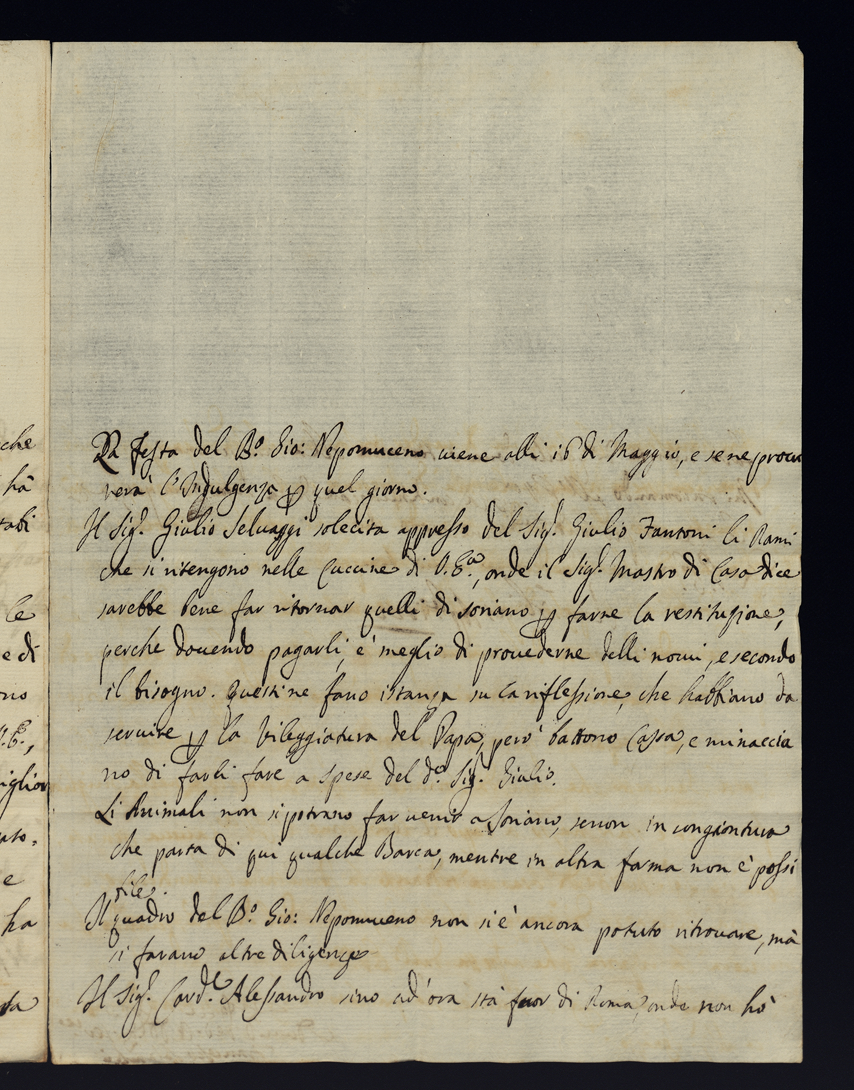 La festa del B.º Gio: Nepomuceno viene alli 16 di Maggio, e se ne procu
rerà l'Indulgenza p quel giorno.
Il Sig.r Giulio Selvaggi solecita appresso del Sig.r Giulio Fantoni li Rami
che si ritengono nelle Cuccine di V.E.a, onde il Sig.r Mastro di Casa dice
sarebbe bene far ritornar quelli di Soriano p farne la restituzione,
perche dovendo pagarli, è meglio di provederne delli novi, e secondo
il bisogno. Questi ne fano istanza su la riflessione, che habbiano da
servire p la Vileggiatura del Papa, però battono Cassa, e minaccia
no di farli fare a spese del d.º Sig.r Giulio.
Li Animali non si potrano far venir a Soriano, senon in congiontura
che parta di qui qualche Barca, mentre in altra forma non è possi
bile.
Il quadro del B.º Gio: Nepomuceno non si è ancora potuto ritrovare, mà
si farano altre diligenze
Il Sig.r Card.le Alessandro sino ad'ora stà fuor di Roma, onde non hò
che
hà
le
e di
ono
V.E.,
miglior
e
ha